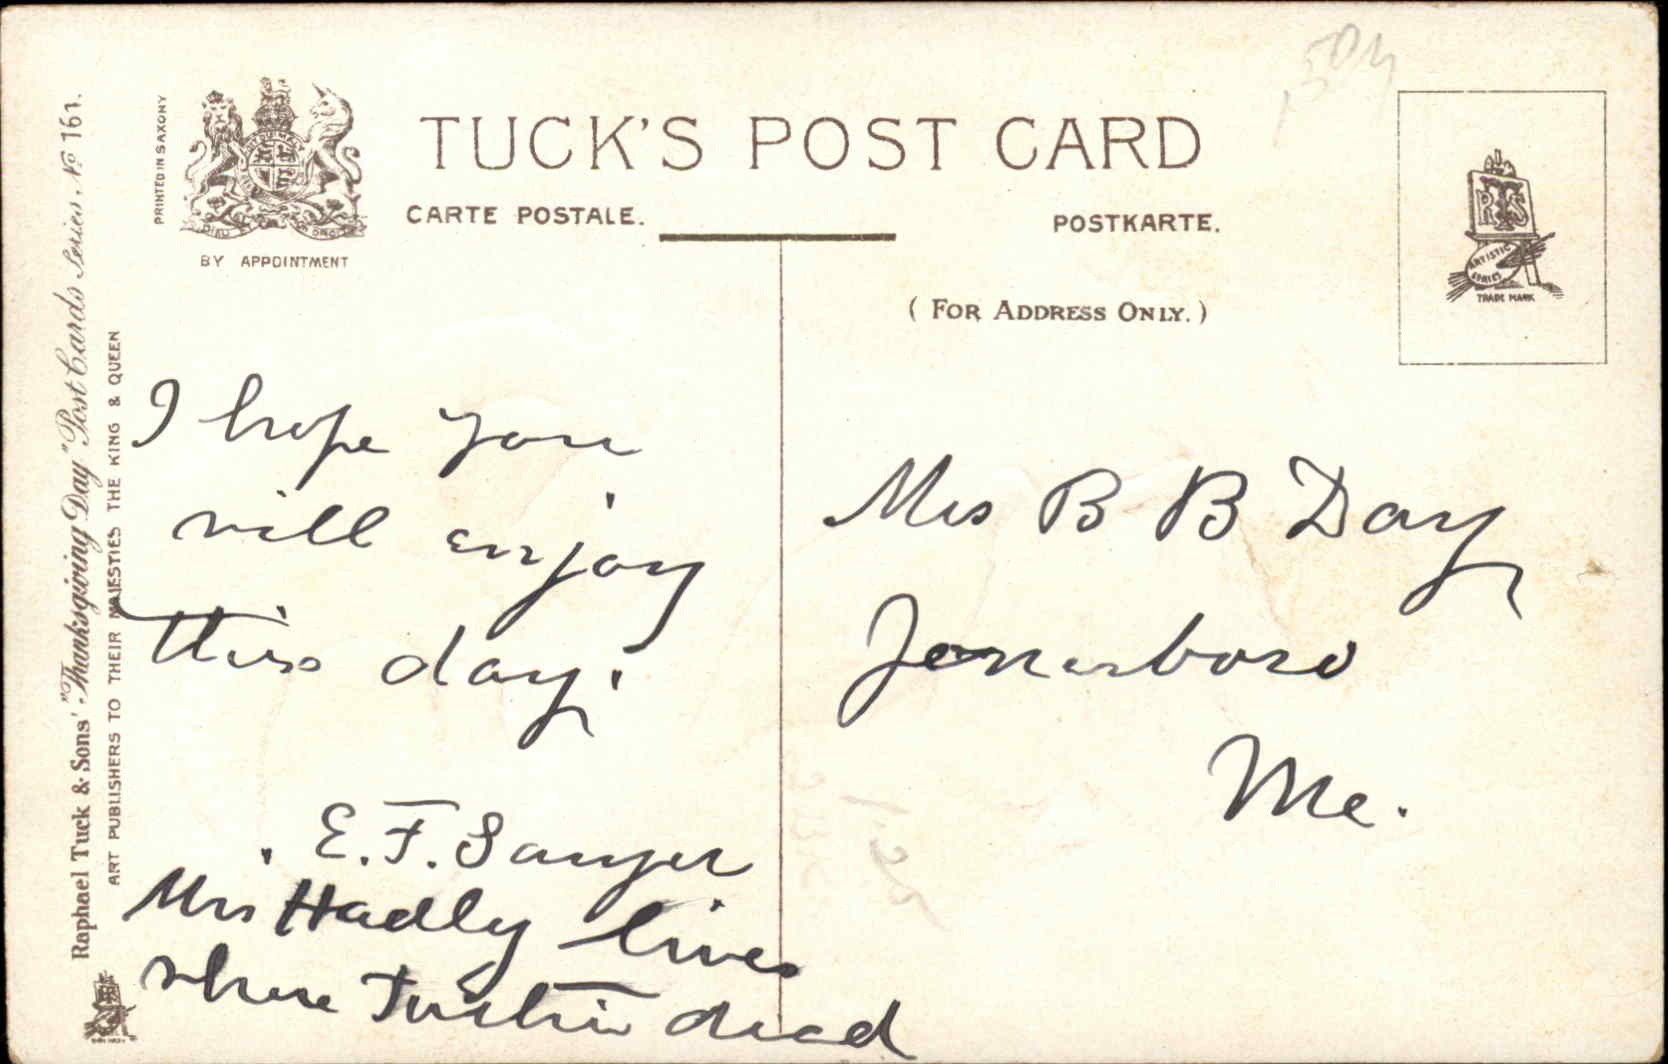 TUCK'S POST CARD
CARTE POSTALE.
POSTKARTE.
(FOR ADDRESS ONLY.)
PRINTED IN SAXONY
DIEU ET MON DROIT
BY APPOINTMENT
Raphael Tuck & Sons' "Thanksgiving Day" Post Cards Series. No 161.
ART PUBLISHERS TO THEIR MAJESTIES THE KING & QUEEN
RTS
ARTISTIC
SERIES
TRADE MARK
I hope you
will enjoy
this day.
E. F. Sawyer
Mrs Hadly lives
where died
Mrs B B Day
Jonesboro
Me.